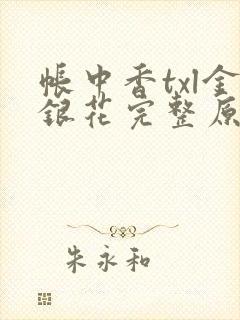 帳中香txl金
銀花完整原
朱永和